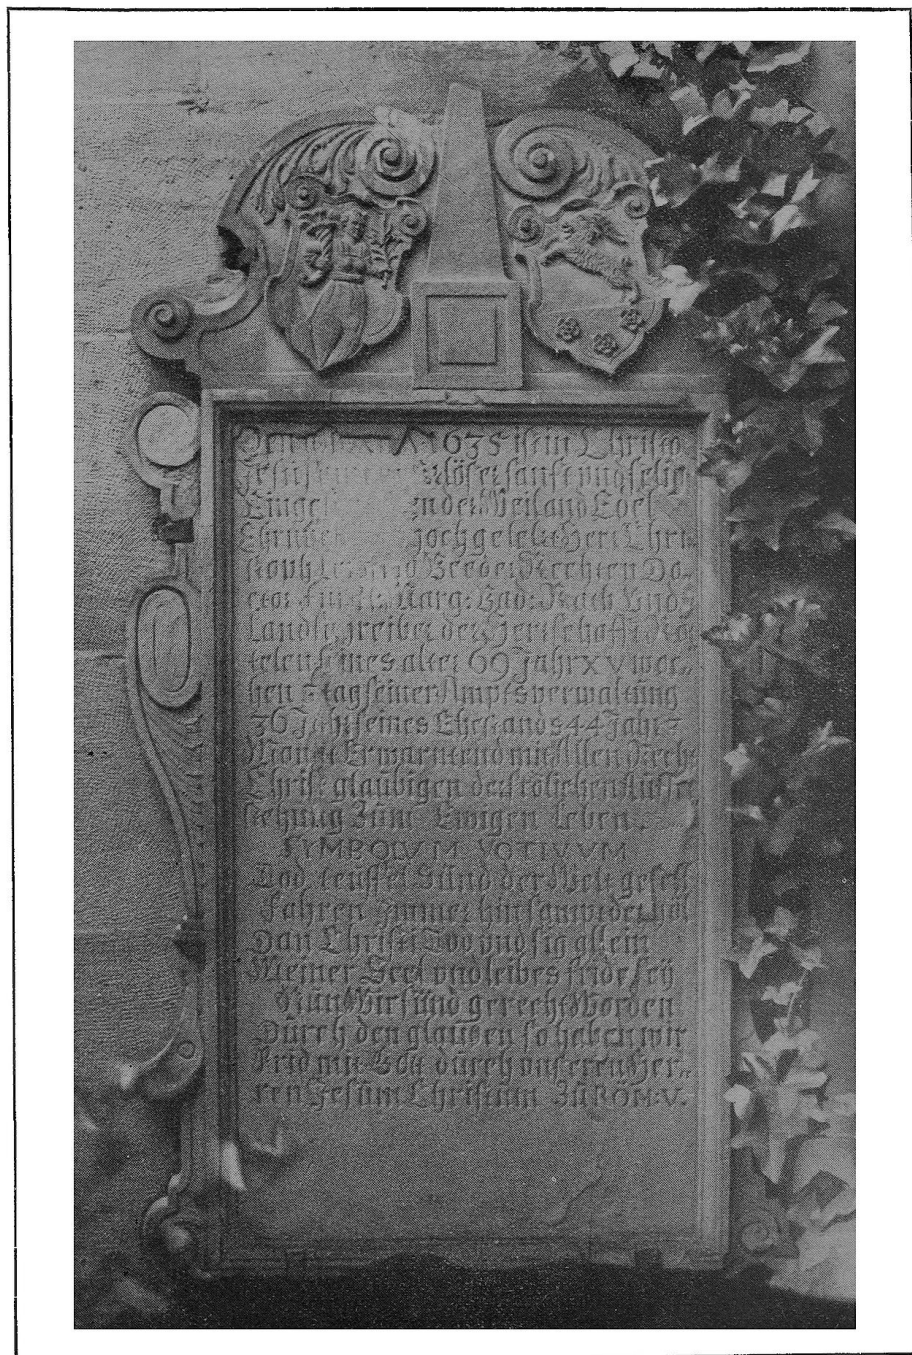 1635 ist in Christo
sanft vnd selig
Einge der Weiland Edel
Hochgelehrte Herr Chri
stoph Beeder Rechten Do
ctor Marg: Bad: Rath Vnd
Landschreiber der Herrschafft Rö
telen seines alter 69 Jahr XV woc
hen tag seiner Ampts verwaltung
36 Johr seines Ehestands 44 Jahr 7
Monat Erwartend mit Allen Recht
Christ glaübigen der frölichen Aüffer
stehung Züm Ewigen Leben.
SYMBOLVM VOTIVVM
Tod teuffel Sünd der Welt gesell
Fahren Immer hin sampt der Höl
Dan Christi Tod vnd sig allein
Meiner Seel vnd leibes fride seÿ
Nun Wir sind gerecht Worden
Dürch den glauben so haben wir
Frid mit Gott dürch vnseren Her
ren Jesum Christum Zü ROM: V.